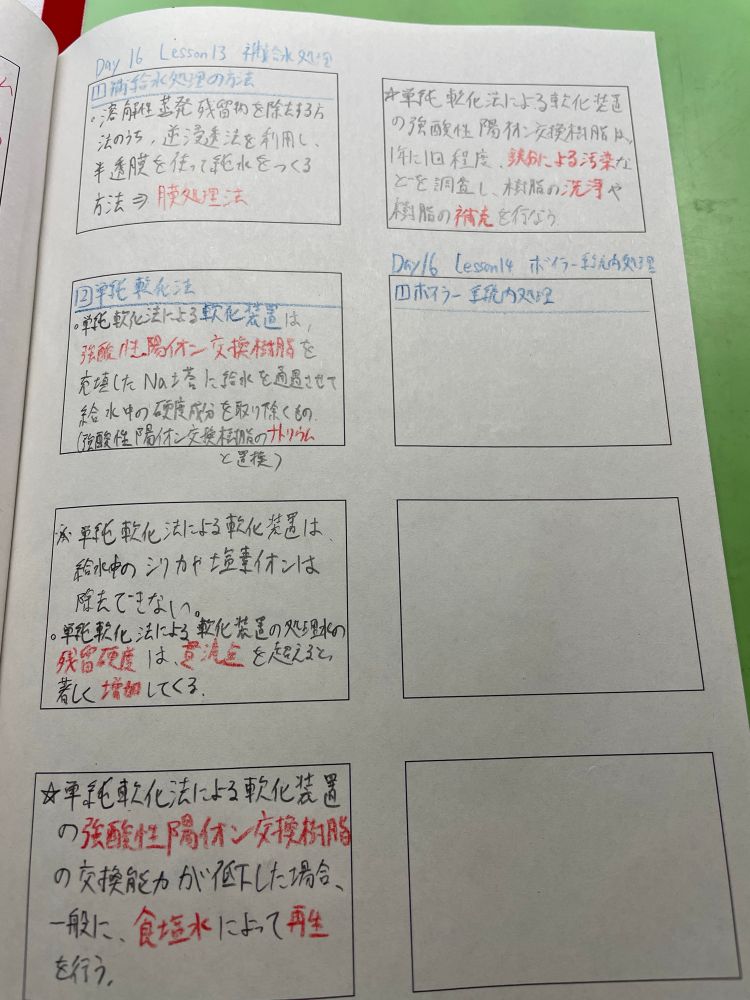 Day 16 Lesson13 補給水処理
1 補給水処理の方法
・溶解性蒸発残留物を除去する方
法のうち、逆浸透法を利用し、
半透膜を使って純水をつくる
方法⇒膜処理法
2 単純軟化法
・単純軟化法による軟化装置は、
強酸性陽イオン交換樹脂を
充填したNa塔に給水を通過させて
給水中の硬度成分を取り除くもの.
(強酸性陽イオン交換樹脂のナトリウム
と置換)
※単純軟化法による軟化装置は、
給水中のシリカや塩素イオンは
除去できない。
・単純軟化法による軟化装置の処理水の
残留硬度は、貫流点を超えると、
著しく増加してくる.
☆単純軟化法による軟化装置
の強酸性陽イオン交換樹脂
の交換能力が低下した場合、
一般に、食塩水によって再生
を行う.
☆単純軟化法による軟化装置
の強酸性陽イオン交換樹脂は、
1年に1回程度、鉄分による汚染な
どを調査し、樹脂の洗浄や
樹脂の補充を行なう
Day16 Lesson14 ボイラー系統内処理
1 ボイラー系統内処理